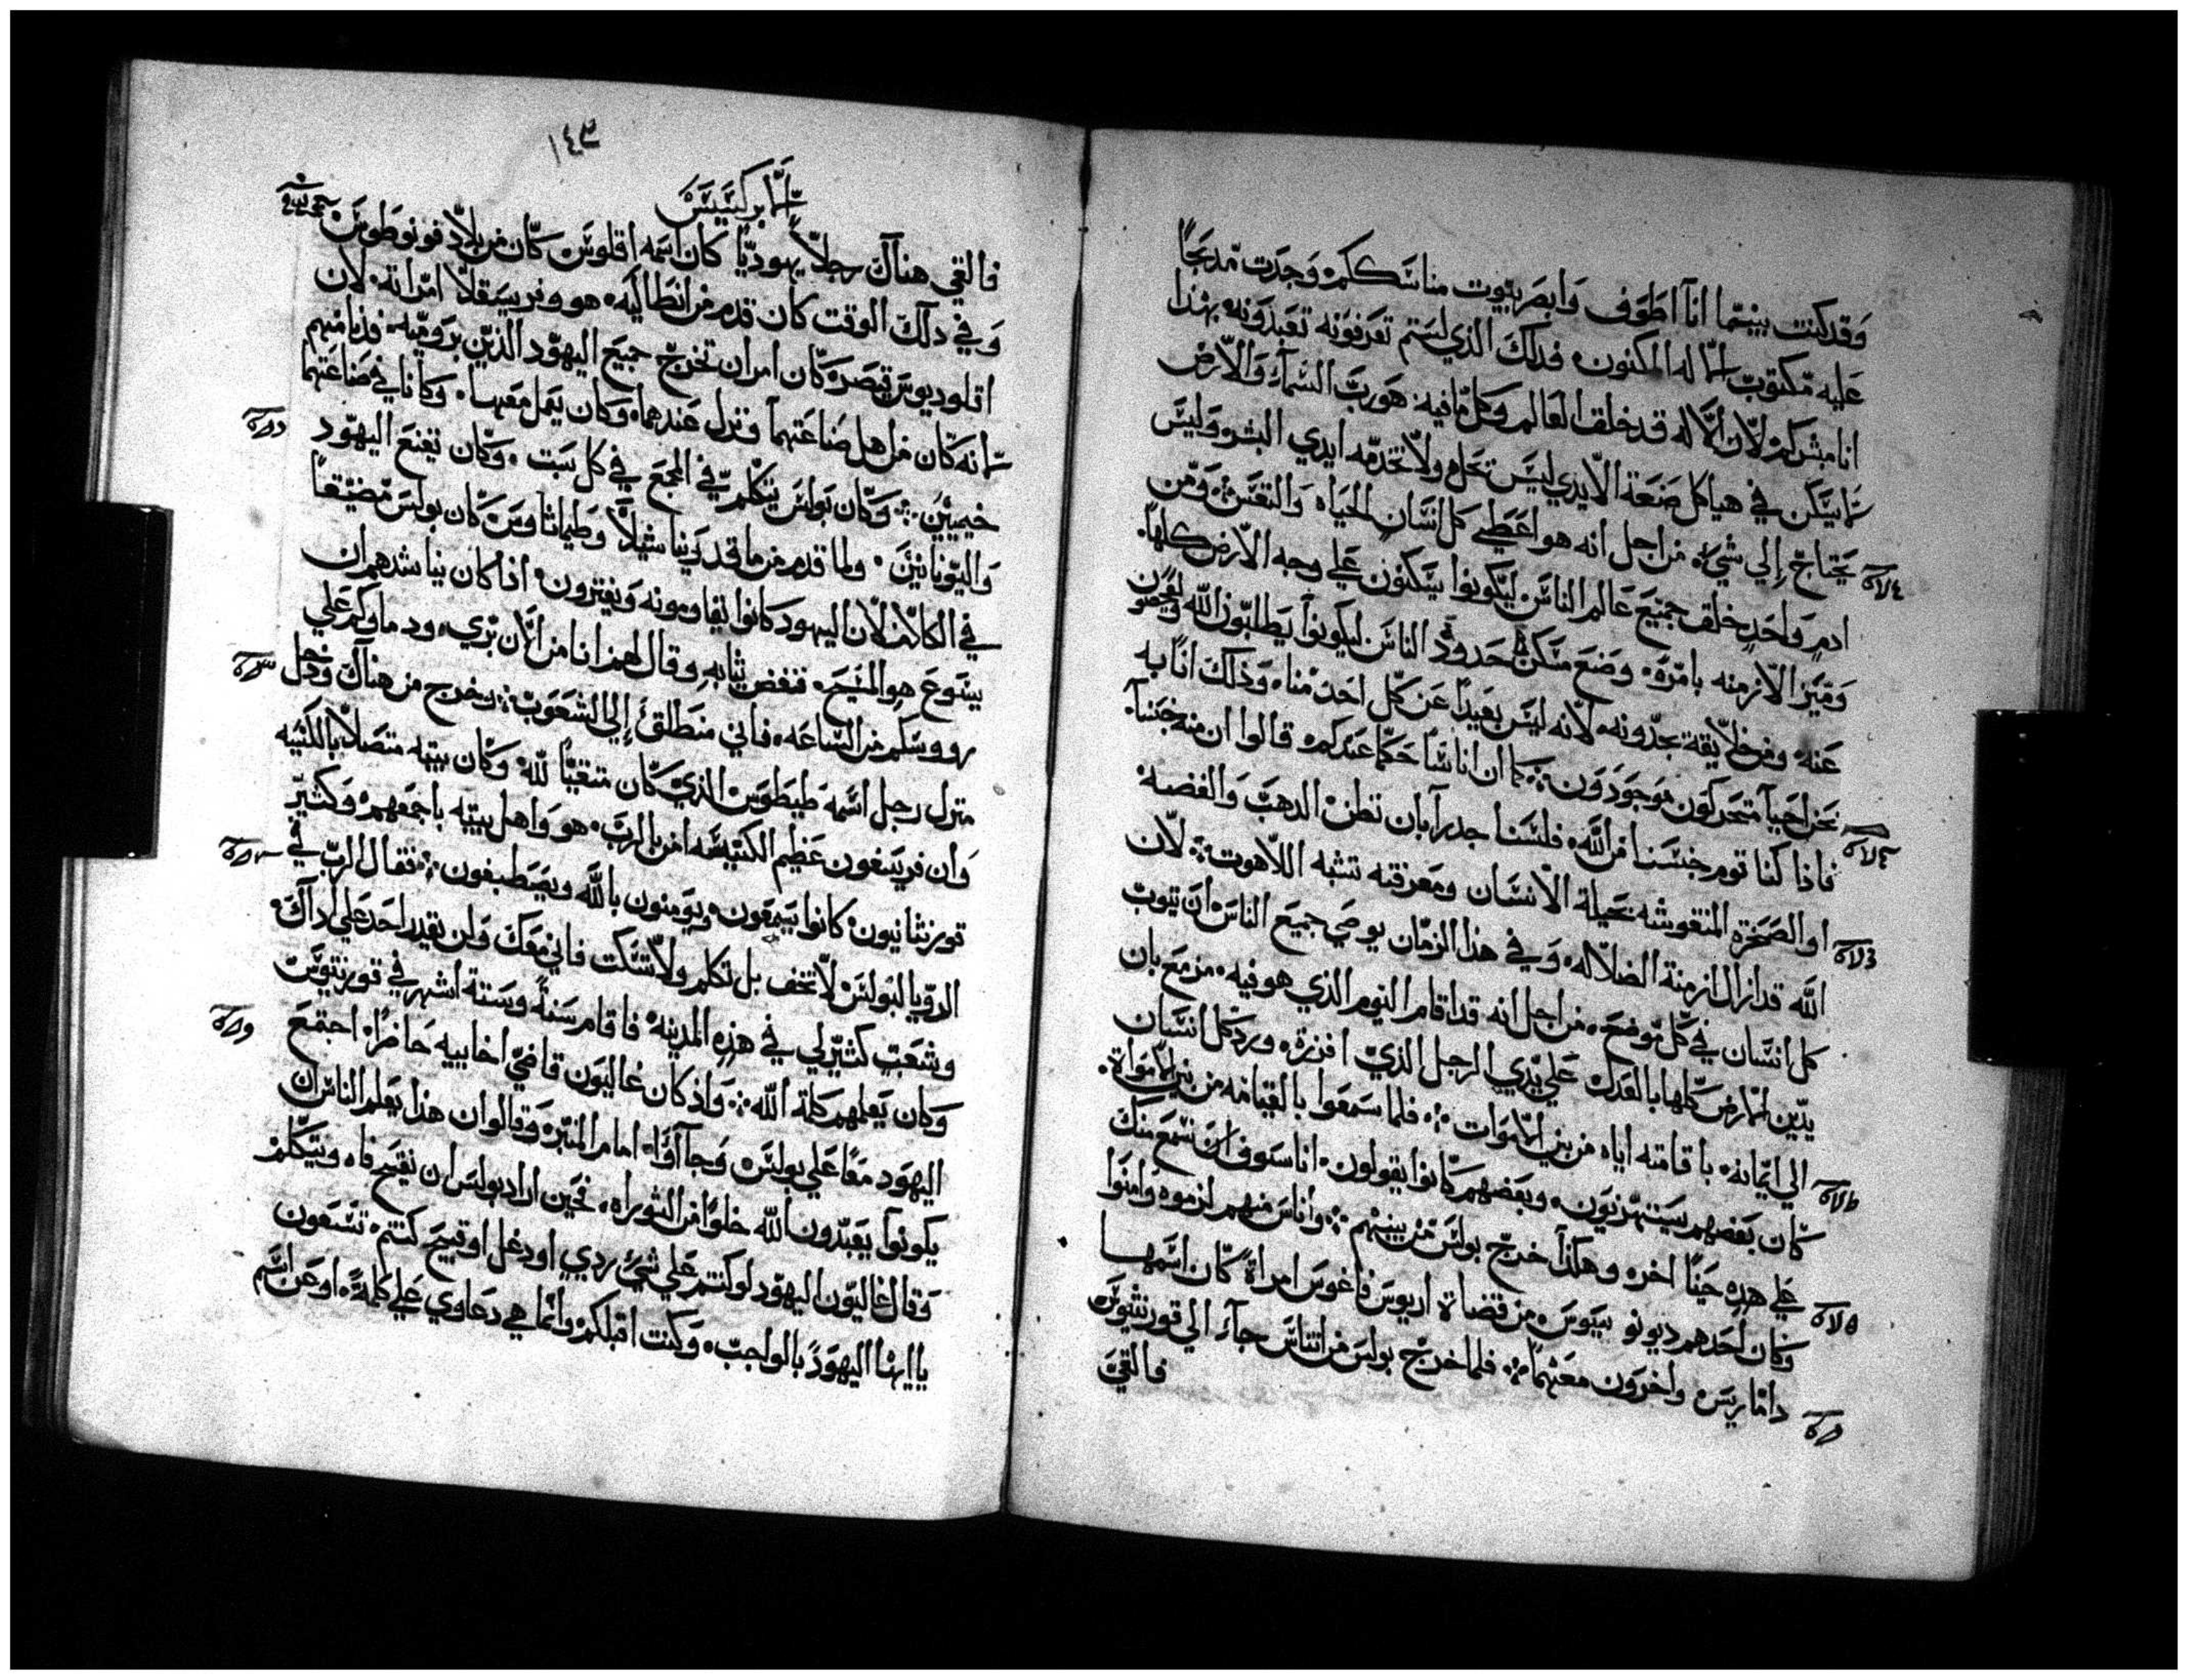 وقد كنت بينما انا اطوف وابصر بيوت مناسككم وجدت مدبحا
عليه مكتوب الاله المكنون. فدلك الذي لستم تعرفونه تعبدونه بهذا
انا مبشركم لان الاله قد خلق العالم وكل ما فيه. هو رب السماء والارض
لا يسكن في هياكل صنعة الايدي ليس تحل ولا تخدمه ايدي البشر وليس
يحتاج إلي شيء. من اجل انه هو اعطي كل انسان الحياه والنفس ومن
ادم واحد خلق جميع عالم الناس ليكونوا يسكنون علي وجه الارض كلها.
وميز الازمنه بامره. ووضع مسكن حدود الناس ليكونوا يطلبون الله
عنه ومن خلايقه يجدونه. لانه ليس بعيدا عن كل احد منا. وذلك انا به
نحن احيا متحركون موجودون. كما ان اناسا حكما عندكم قالوا ان منه جنسنا.
فاذا كنا قوم جنسنا من الله. فلسنا جدرآ بان نظن الدهب والفضه
او الصخرة المنقوشه بحيلة الانسان ومعرفته تشبه اللاهوت. لان
الله قد ازال ازمنة الضلاله. وفي هذا الزمان يوصي جميع الناس ان يتوب
كل انسان في كل موضع. من اجل انه قد اقام اليوم الذي هو فيه مزمع بان
يدين الارض كلها بالعدل علي يدي الرجل الذي افرزه. ورد كل انسان
الي ايمانه. باقامته اياه من بين الاموات. فلما سمعوا بالقيامه من بين الاموات.
كان بعضهم يستهزيون. وبعضهم كانوا يقولون. انا سوف نسمع منك
علي هذه حينا اخر. وهكذا خرج بولس من بينهم. واناس منهم لزموه وامنوا
وكان احدهم ديونوسيوس من قضاة اريوس فاغوس وامراة كان اسمها
داماريس واخرون معهما. فلما خرج بولس من اتناس جآء الي قورنثيوس
فالقي
١٤٣
الابركسيس
فالقي هناك رجلا يهوديا كان اسمه اقلوس كان من بلاد فونوطوس
وفي دلك الوقت كان قدم من انطاليه. هو وفريسقلا امراته. لان
اقلوديوس قيصر كان امر ان تخرج جميع اليهود الذين برومية. فدنا منهم
لانه كان من اهل صناعتهما ونزل عندهما. وكان يعمل معهما. وكانا في صناعتهما
خيميين. وكان بولس يتكلم في المجمع في كل سبت. وكان يقنع اليهود
واليونانيين. ولما قدم من ماقدونيا شيلا وطيماثاوس كان بولس مضيقا
في الكلام لان اليهود كانوا يقاومونه ويفترون. اذا كان يناشدهم ان
يسوع هو المسيح. فنفض ثيابه وقال لهم انا من الان بري. ودماوكم علي
رووسكم من الساعه. فاني منطلق إلي الشعوب. وخرج من هناك ودخل
منزل رجل اسمه طيطوس الذي كان متقيا لله وكان بيته متصلا بالكنيسه
وان قريسفون عظيم الكنيسه امن بالرب. هو واهل بيته باجمعهم. وكثير
قورنثانيون كانوا يسمعون. ويومنون بالله ويصطبغون. فقال الرب في
الرويا لبولس لا تخف بل تكلم ولا تسكت فاني معك ولن يقدر احد علي اداك.
وشعب كثير لي في هذه المدينه. فاقام سنة وستة اشهر في قورنثيوس
وكان يعلمهم كلمة الله. واذ كان غاليون قاضي اخاييه حاضرا. اجتمع
اليهود معا علي بولس وجاآوا امام المنبر. وقالوا ان هذا يعلم الناس ان
يكونوا يعبدون الله خلوا من التوراه. فحين اراد بولس ان يفتح فاه ويتكلم
وقال غاليون اليهود لو كنتم علي شيء ردي او دغل او قبيح كنتم تسعون
يا ايها اليهود بالواجب. وكنت اقبلكم وانما هي دعاوي علي كلمة. او عن اسم